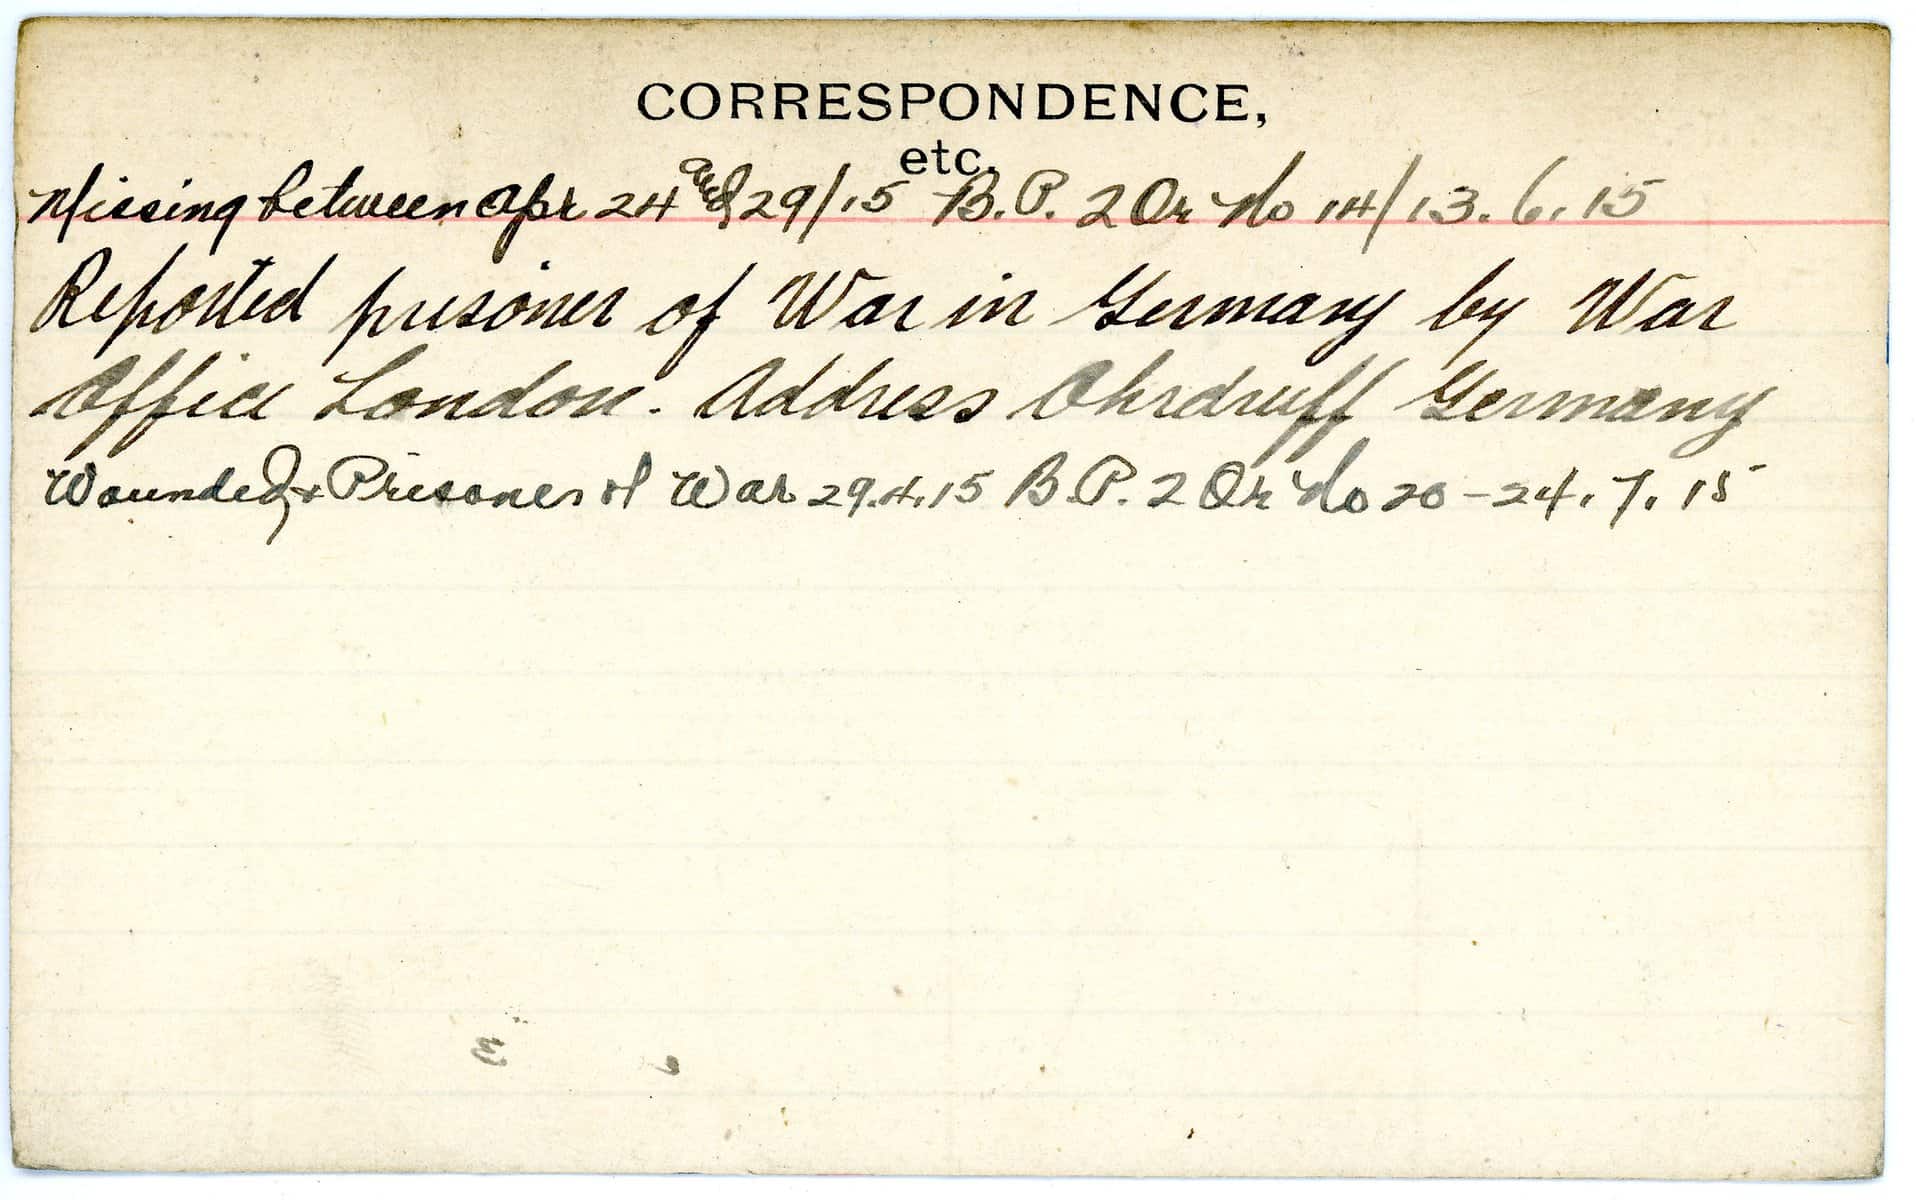 CORRESPONDENCE,
etc.
Missing between Apr 24 and 29/15 B.P. 2 Or No 14/13.6.15
Reported prisoner of War in Germany by War
Office London. Address Ohrdruff Germany
Wounded & Prisoner of War 29.4.15 B.P. 2 Or No 20-24.7.15